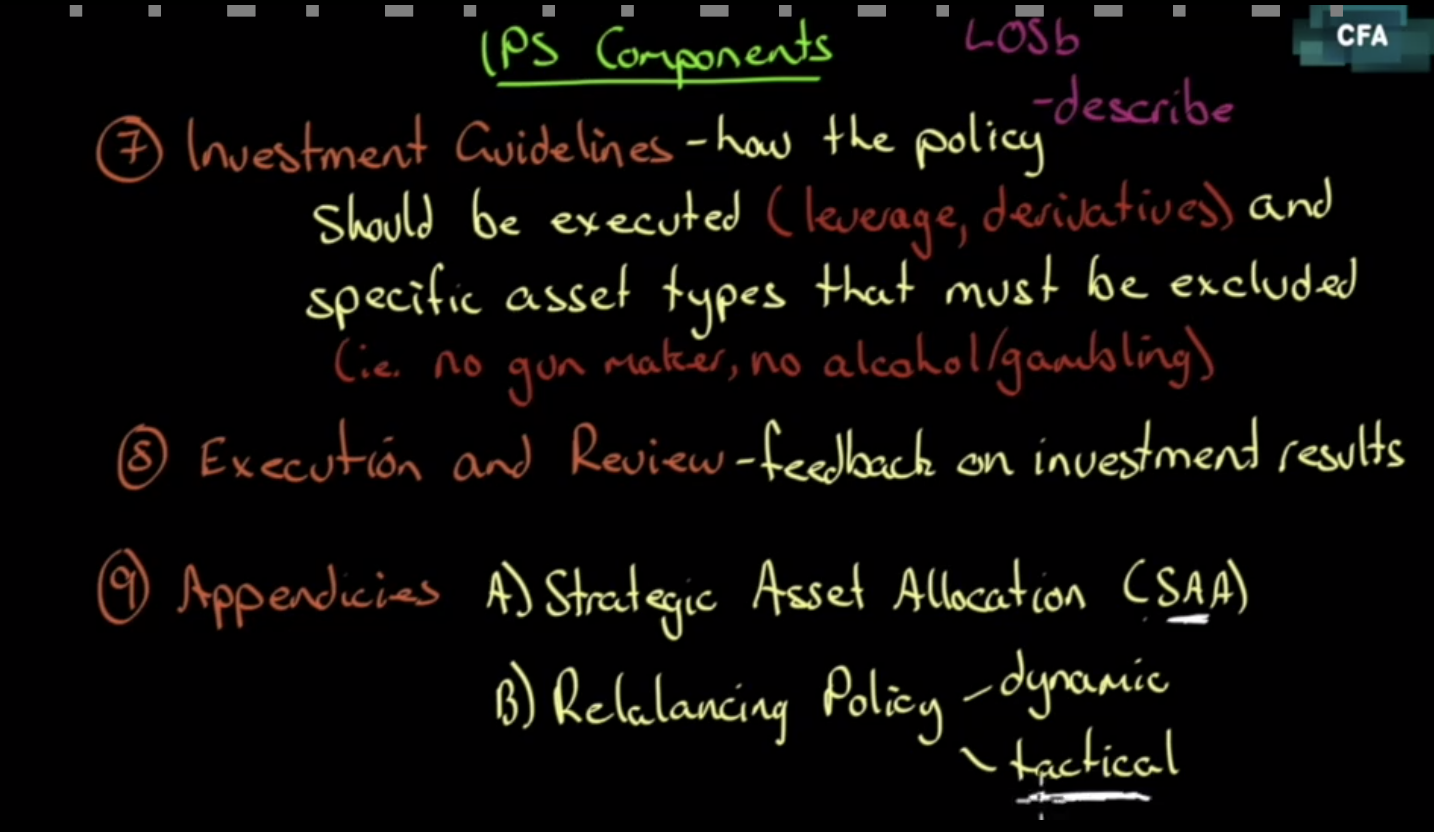 IPS Components
LOSb
CFA
-describe
⑦ Investment Guidelines - how the policy
should be executed (leverage, derivatives) and
specific asset types that must be excluded
(ie. no gun maker, no alcohol/gambling)
⑧ Execution and Review - feedback on investment results
⑨ Appendicies A) Strategic Asset Allocation (SAA)
B) Relalancing Policy - dynamic
- tactical